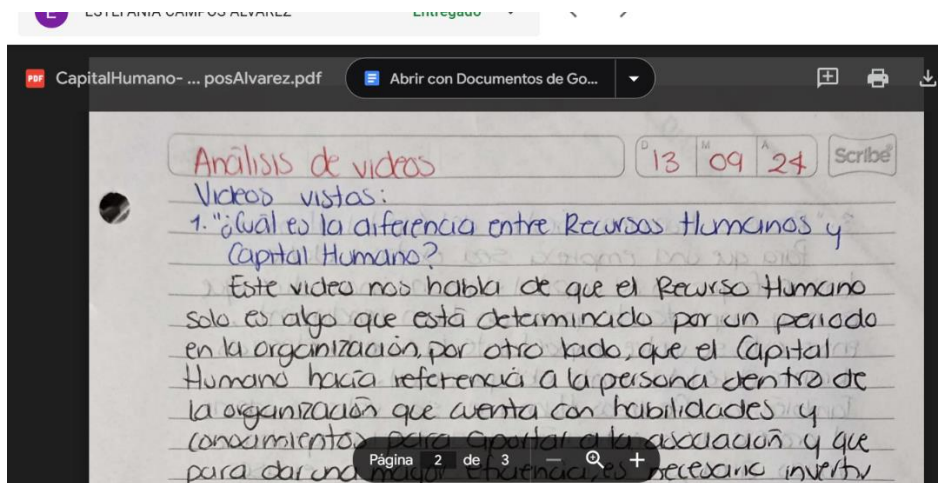 ESTEFANIA CAMPOS ALVAREZ
Entregado
PDF CapitalHumano- ... posAlvarez.pdf
Abrir con Documentos de Go...
Análisis de videos
D 13 M 09 A 24 Scribe
Videos vistos:
1. "¿Cuál es la diferencia entre Recursos Humanos y
Capital Humano?
Este video nos habla de que el Recurso Humano
solo es algo que está determinado por un periodo
en la organización, por otro lado, que el Capital
Humano hacía referencia a la persona dentro de
la organización que cuenta con habilidades y
conocimientos para aportar a la asociación y que
para dar una mayor eficiencia, es necesario invertir
Página 2 de 3